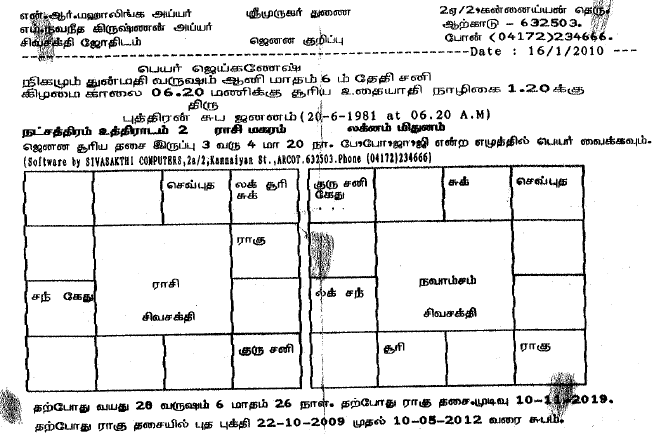 என்.ஆர்.மஹாலிங்க அய்யர் ஸ்ரீமுருகர் துணை 2ஏ/2,கன்னைய்யன் தெரு.
எம்.நவநீத கிருஷ்ணன் அய்யர் ஆற்காடு - 632503.
சிவசக்தி ஜோதிடம் ஜெனன குறிப்பு போன் (04172)234666.
Date : 16/1/2010
பெயர் ஜெய்கணேஷ்
நிகழும் துன்மதி வருஷம் ஆனி மாதம் 6 ம் தேதி சனி
கிழமை காலை 06.20 மணிக்கு சூரிய உதையாதி நாழிகை 1.20க்கு
திரு
புத்திரன் சுப ஜனனம் (20-6-1981 at 06.20 A.M)
நட்சத்திரம் உத்திராடம் 2 ராசி மகரம் லக்னம் மிதுனம்
ஜெனன சூரிய தசை இருப்பு 3 வரு 4 மா 20 நா. பே,போ,ஜா,ஜி என்ற எழுத்தில் பெயர் வைக்கவும்.
(Software by SIVASAKTHI COMPUTERS,2a/2,Kannaiyan St.,ARCOT.632503.Phone (04172)234666)
செவ்புத லக் சூரி குரு சனி சுக் செவ்புத
சுக் கேது
ராகு
ராசி நவாம்சம்
சந் கேது லக் சந்
சிவசக்தி சிவசக்தி
குரு சனி சூரி ராகு
தற்போது வயது 28 வருஷம் 6 மாதம் 26 நாள். தற்போது ராகு தசை.முடிவு 10-11-2019.
தற்போது ராகு தசையில் புத புக்தி 22-10-2009 முதல் 10-05-2012 வரை சுபம்.